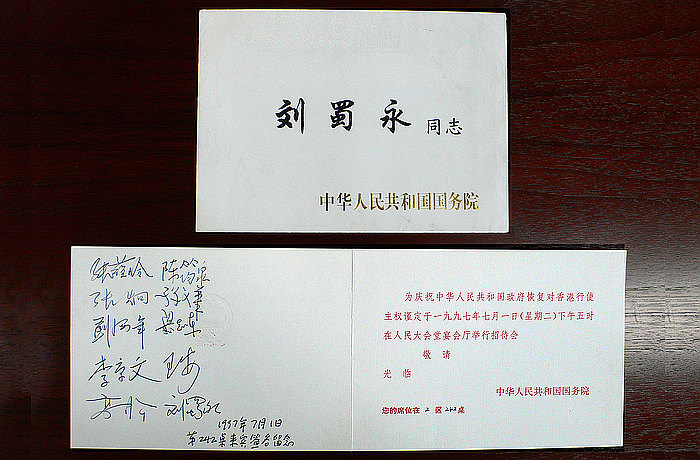 刘蜀永 同志
中华人民共和国国务院
陈筠泉
李京文
刘蜀永
1997年7月1日
第242桌来宾签名留念
为庆祝中华人民共和国政府恢复对香港行使
主权谨定于一九九七年七月一日(星期二)下午五时
在人民大会堂宴会厅举行招待会
敬请
光临
中华人民共和国国务院
您的席位在 2 区 242 桌